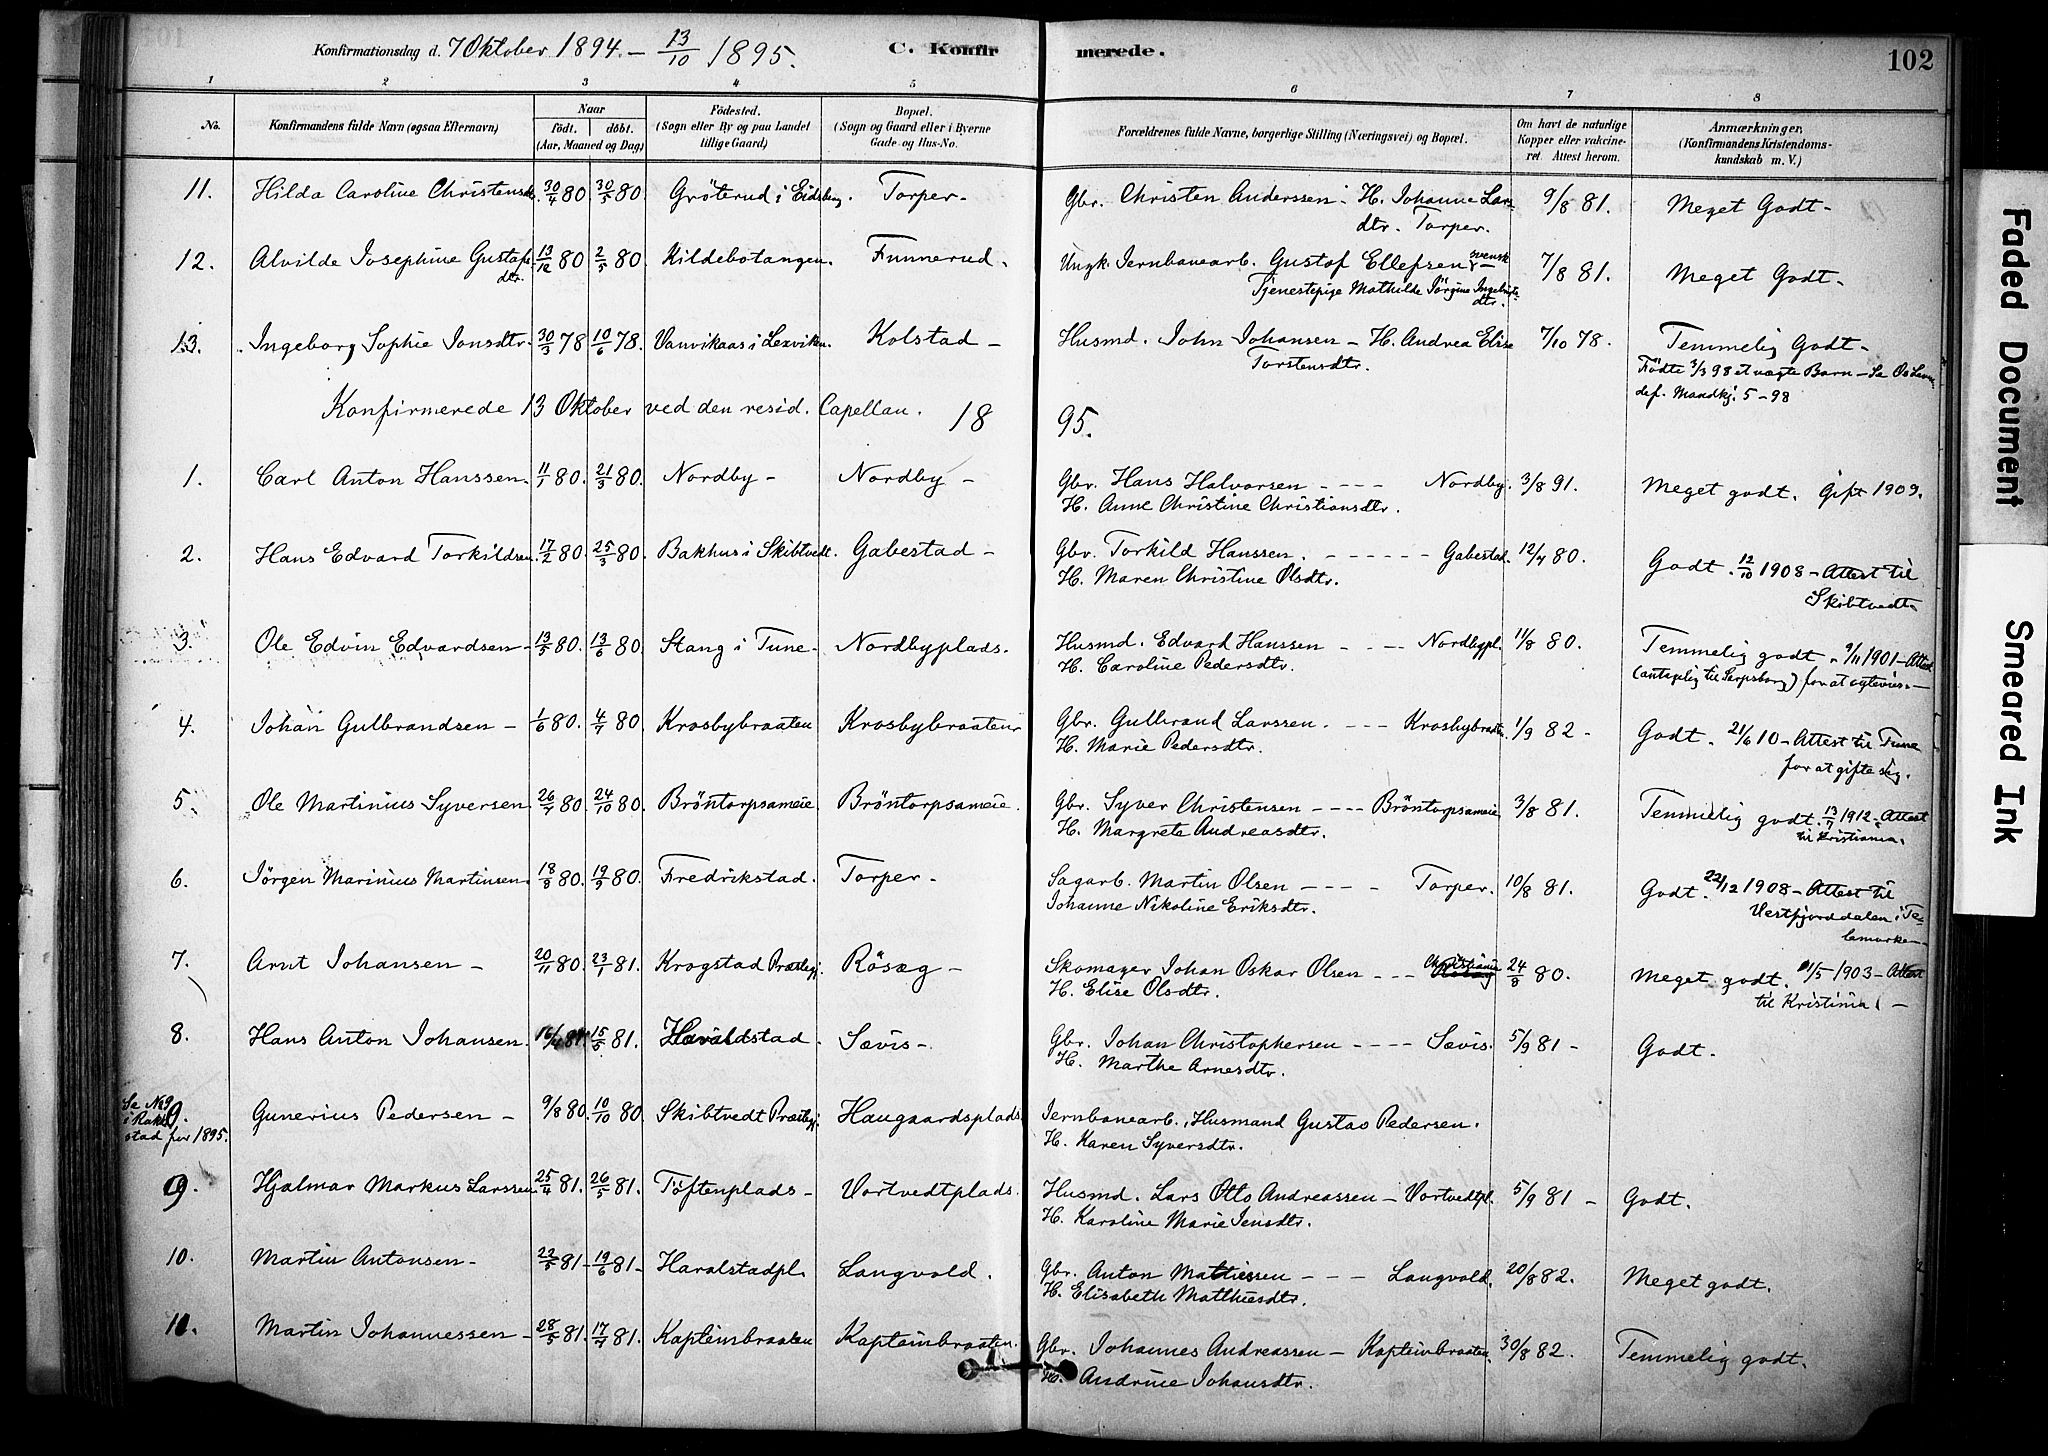 Konfirmationsdag d. 7 Oktober 1894. – 13/10 1895. C. Konfirmerede. 102
1 2 3 4 5 6 7 8
No. Konfirmandens fulde Navn (ogsaa Efternavn) Naar født. døbt. (Aar, Maaned og Dag) Fødested. (Sogn eller By og paa Landet tillige Gaard) Bopæl. (Sogn og Gaard eller i Byerne Gade og Hus-No. Forældrenes fulde Navne, borgerlige Stilling (Næringsvei) og Bopæl. Om havt de naturlige Kopper eller vakcineret. Attest herom. Anmærkninger. (Konfirmandens Kristendomskundskab m. V.)
11. Hilda Caroline Christensdtr. 30/4 80 30/5 80 Gröterud i Eidsberg. Torper. Gbr. Christen Anderssen – H. Johanne Lars- 9/8 81. Meget Godt.
dtr. Torper.
12. Alvilde Josephine Gustafs- 13/12 80 2/5 80 Kildebotangen. Funnerud. Ungk. Jernbanearb. Gustof Ellefsen svensk 7/8 81. Meget Godt.
dtr. Tjenestepige Mathilde Jörgine Ingebrigts-
dtr.
13. Ingeborg Sophie Jonsdtr. 30/3 78 10/6 78. Vanvikaas i Lexviken. Kolstad – Husmd. John Johansen – H. Andrea Elise 7/10 78. Temmelig Godt.
Torstensdtr. Födte 3/3 98 et uægte Barn – Se
def. Mandkj. 5 – 98
Konfirmerede 13 Oktober ved den resid. Capellan. 18 95.
1. Carl Anton Hanssen. 11/1 80. 21/3 80. Nordby – Nordby – Gbr. Hans Halvorsen - - - Nordby. 3/8 91. Meget godt. Gift 1909.
H. Anne Christine Christiansdtr.
2. Hans Edvard Torkildsen. 17/2 80. 25/3 80. Bakhus i Skibtvedt. Gabestad – Gbr. Torkild Hanssen. - - - - - Gabestad. 12/4 80. Godt. 12/10 1908 – Attest til
H. Maren Christine Olsdtr. Skibtvedt
3. Ole Edvin Edvardsen – 13/5 80. 13/6 80 Stang i Tune – Nordbyplads. Husmd. Edvard Hanssen - - - Nordbypl. 11/8 80. Temmelig godt. 9/11 1901 – Attest
H. Caroline Pedersdtr. (antagelig til Sarpsborg) for at
4. Johan Gulbrandsen – 1/6 80. 4/7 80 Krosbybraaten Krosbybraaten Gbr. Gulbrand Larssen. - - - Krosbybraaten 1/9 82 – Godt. 21/6 10 – Attest til Tune
H. Marie Pedersdtr. for at gifte sig.
5. Ole Martinius Syversen. 26/7 80. 24/10 80. Bröntorpsameie. Bröntorpsameie. Gbr. Syver Christensen - - - Bröntorpsameie 3/8 81. Temmelig godt. 13/7 1912 – Attest
H. Margrete Andreasdtr. til Kristiania.
6. Jörgen Marinius Martinsen. 18/8 80. 19/9 80. Fredrikstad. Torper. Sagarb. Martin Olsen - - - Torper. 10/8 81. Godt. 22/12 1908 – Attest til
Johanne Nikoline Eriksdtr. Vestfjorddalen i Te-
lemarken
7. Arnt Johansen – 20/11 80. 23/1 81. Krogstad Præstegj. Rösæg – Skomager Johan Oskar Olsen - - - Christiania 24/8 80. Meget godt. 1/5 1903 – Attest
H. Elise Olsdtr. til Kristiania
8. Hans Anton Johansen. 16/4 81. 15/5 81. Haraldstad. Sævis. Gbr. Johan Christophersen - - - - Sævis. 5/9 81 – Godt.
H. Marthe Arnesdtr.
Se No 9 i Rakkestad for 1895. 9. Gunerius Pedersen – 9/8 80. 10/10 80 Skibtvedt Præstegj. Haugaardsplads Jernbanearb., Husmand Gustav Pedersen.
H. Karen Syversdtr.
9. Hjalmar Markus Larssen. 25/4 81. 26/5 81. Töftenplads – Vortvedtplads. Husmd. Lars Otto Andreassen – Vortvedtpl. 5/9 81 – Godt.
H. Karoline Marie Jensdtr.
10. Martin Antonsen – 22/5 81 – 19/6 81. Haralstadpl. Langvold. Gbr. Anton Mathiessen - - - Langvold. 20/8 82. Meget godt.
H. Elisabeth Matthiesdtr.
11. Martin Johannessen – 28/5 81. 17/7 81. Kapteinbraaten Kapteinbraaten. Gbr. Johannes Andreassen – Kapteinbraaten. 30/8 82. Temmelig godt.
H. Andrine Johansdtr.
Faded Document
Smeared Ink